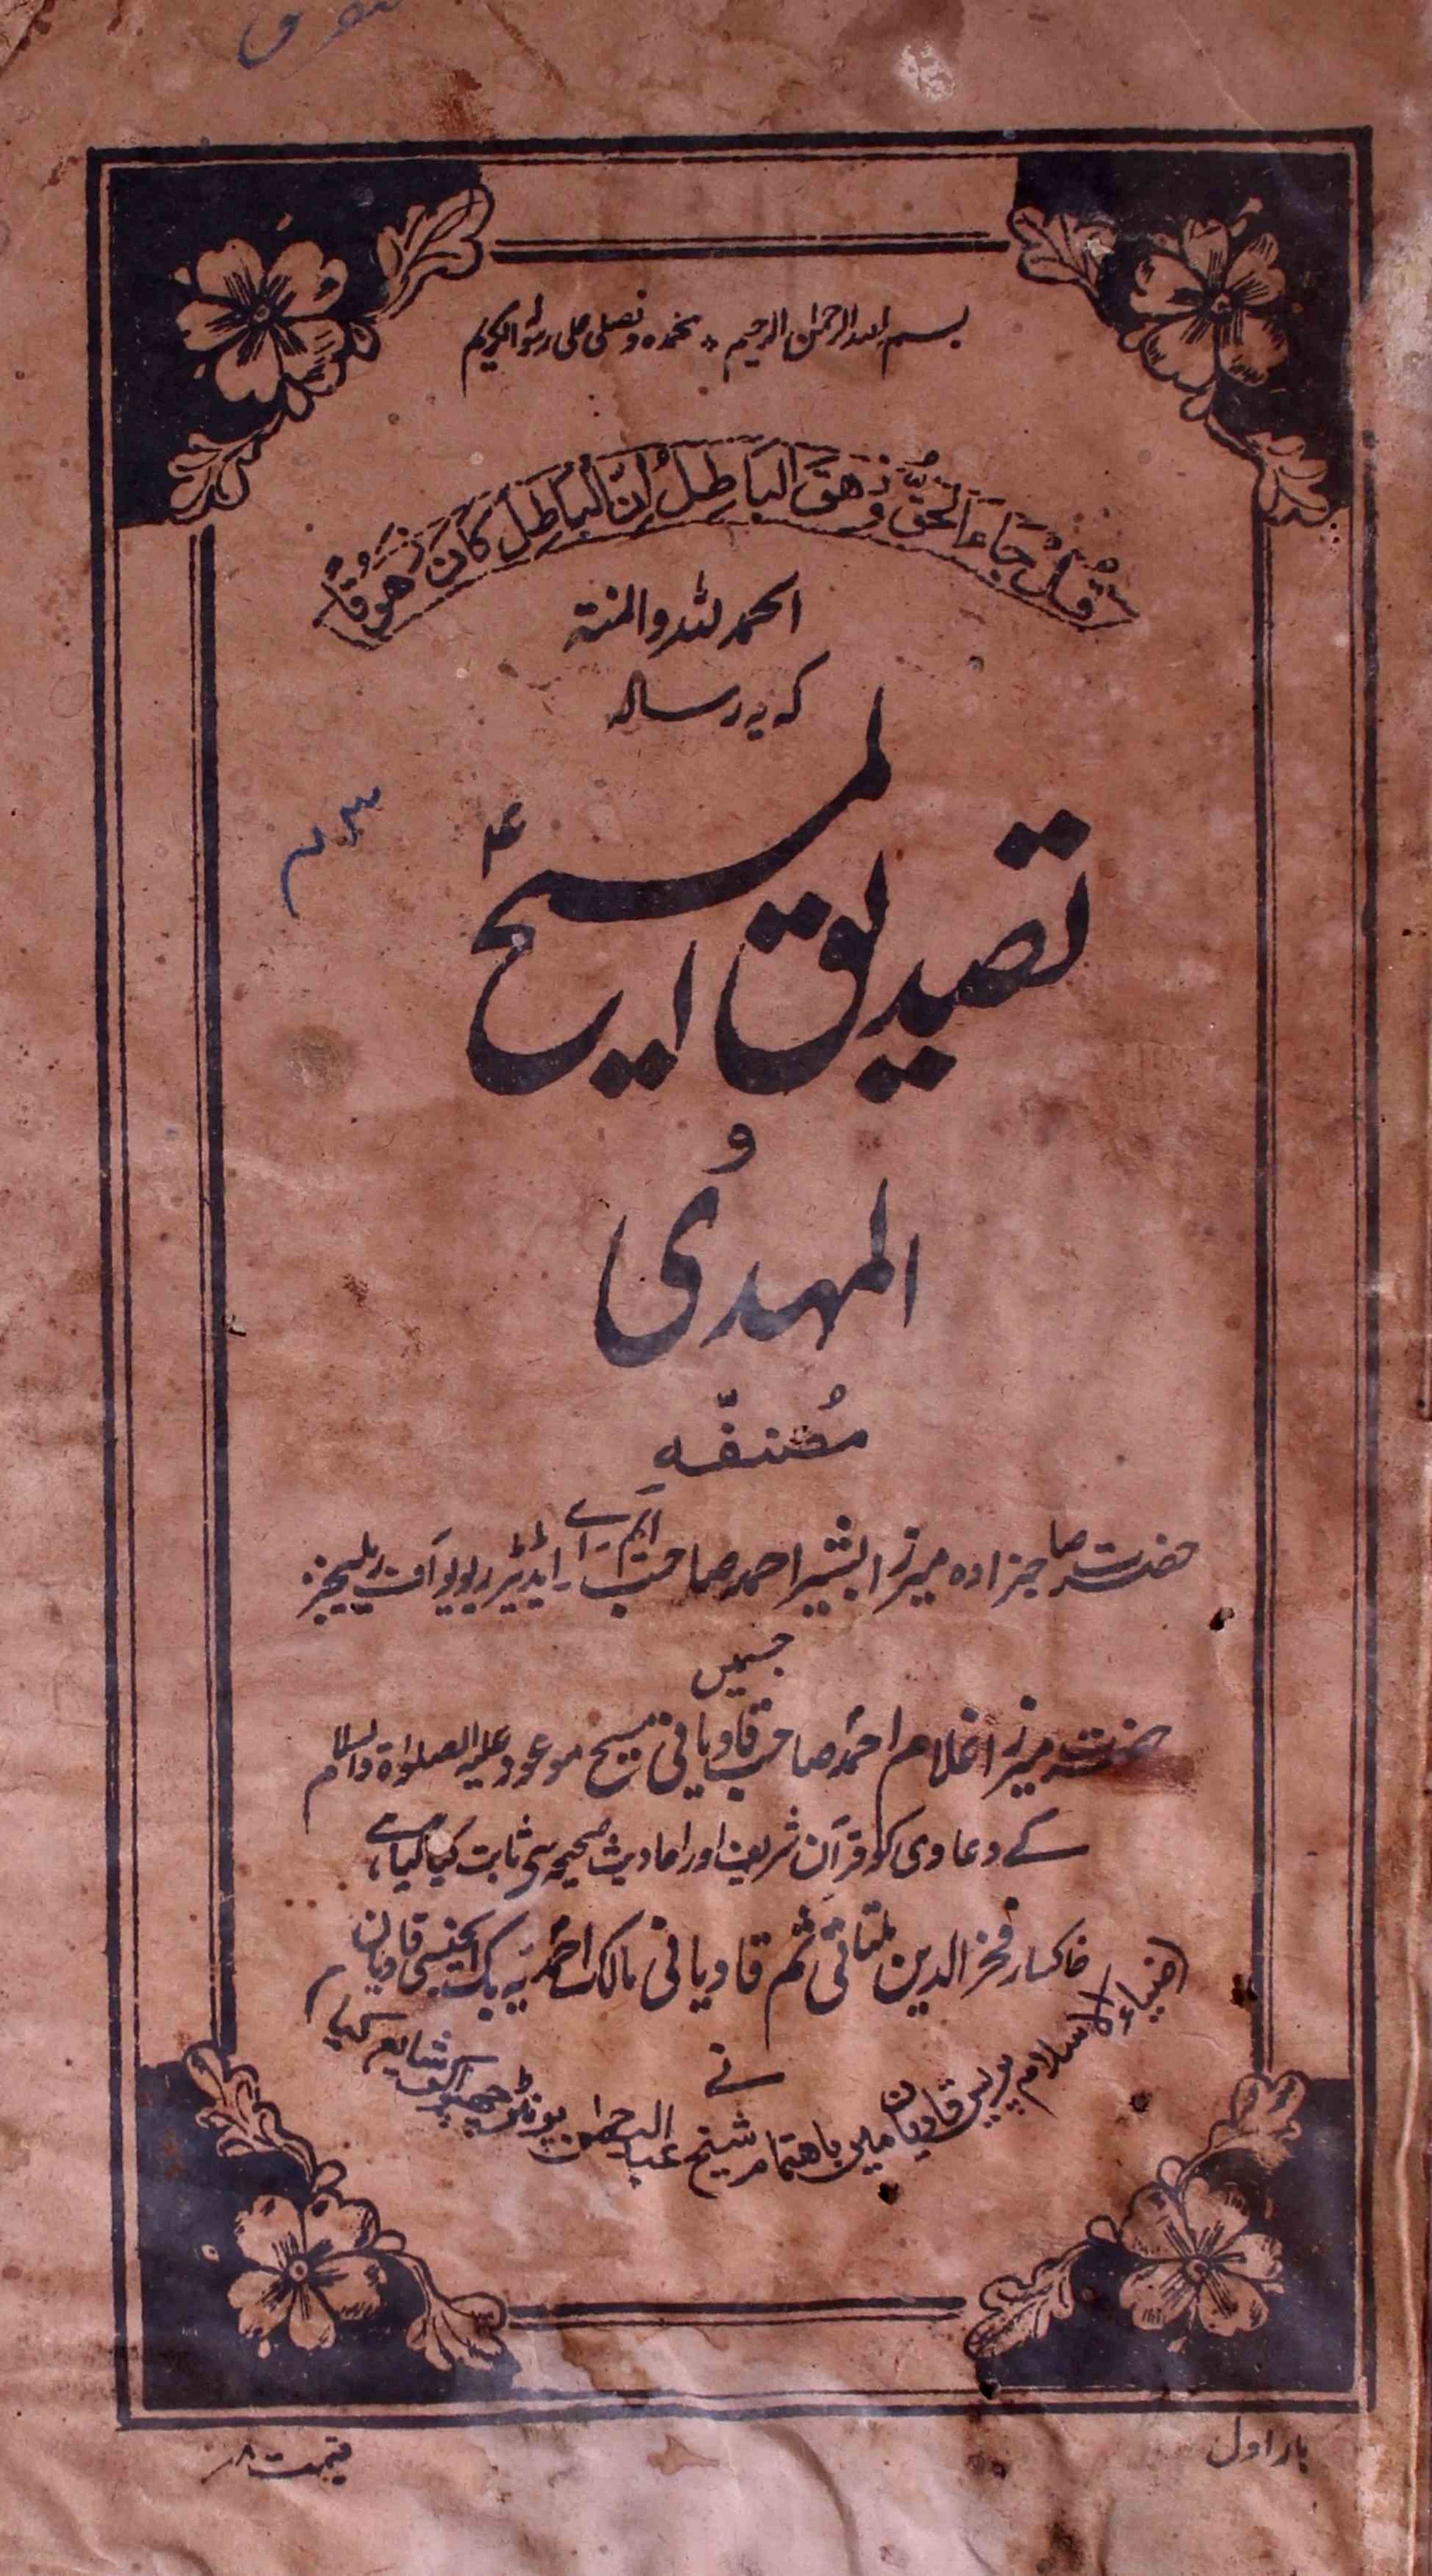 بسم اللہ الرحمٰن الرحیم ٭ نحمدہ و نصلی علی رسولہ الکریم
قُلْ جَاءَ الْحَقُّ وَزَهَقَ الْبَاطِلُ اِنَّ الْبَاطِلَ كَانَ زَهُوْقًا
الحمد للہ والمنتہ
کہ یہ رسالہ
تصدیق المسیح
و
المہدی
مُصنفّہ
حضرت صاحبزادہ میرزا بشیر احمد صاحب ایم۔ اے۔ ایڈیٹر ریویو آف ریلیجنز
جسمیں
حضرت میرزا غلام احمد صاحب قادیانی مسیح موعود علیہ الصلوٰۃ والسلام
کے دعاوی کو قرآن شریف اور احادیث صحیحہ سے ثابت کیا گیا ہے
خاکسار فخر الدین ملتانی ثم قادیانی مالک احمدیہ بک ایجنسی قادیان
نے
ضیاء الاسلام پریس قادیان میں باهتمام شیخ عبد الرحمٰن پرنٹر چھپواکر شایع کیا
بار اول
قیمت ۸ر